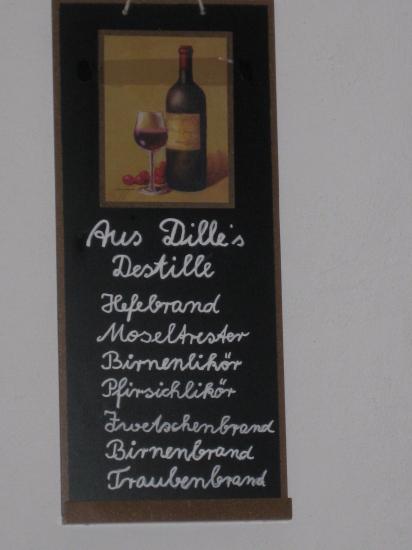 Aus Dille's
Destille
Hefebrand
Moseltrester
Birnenlikör
Pfirsichlikör
Zwetschenbrand
Birnenbrand
Traubenbrand